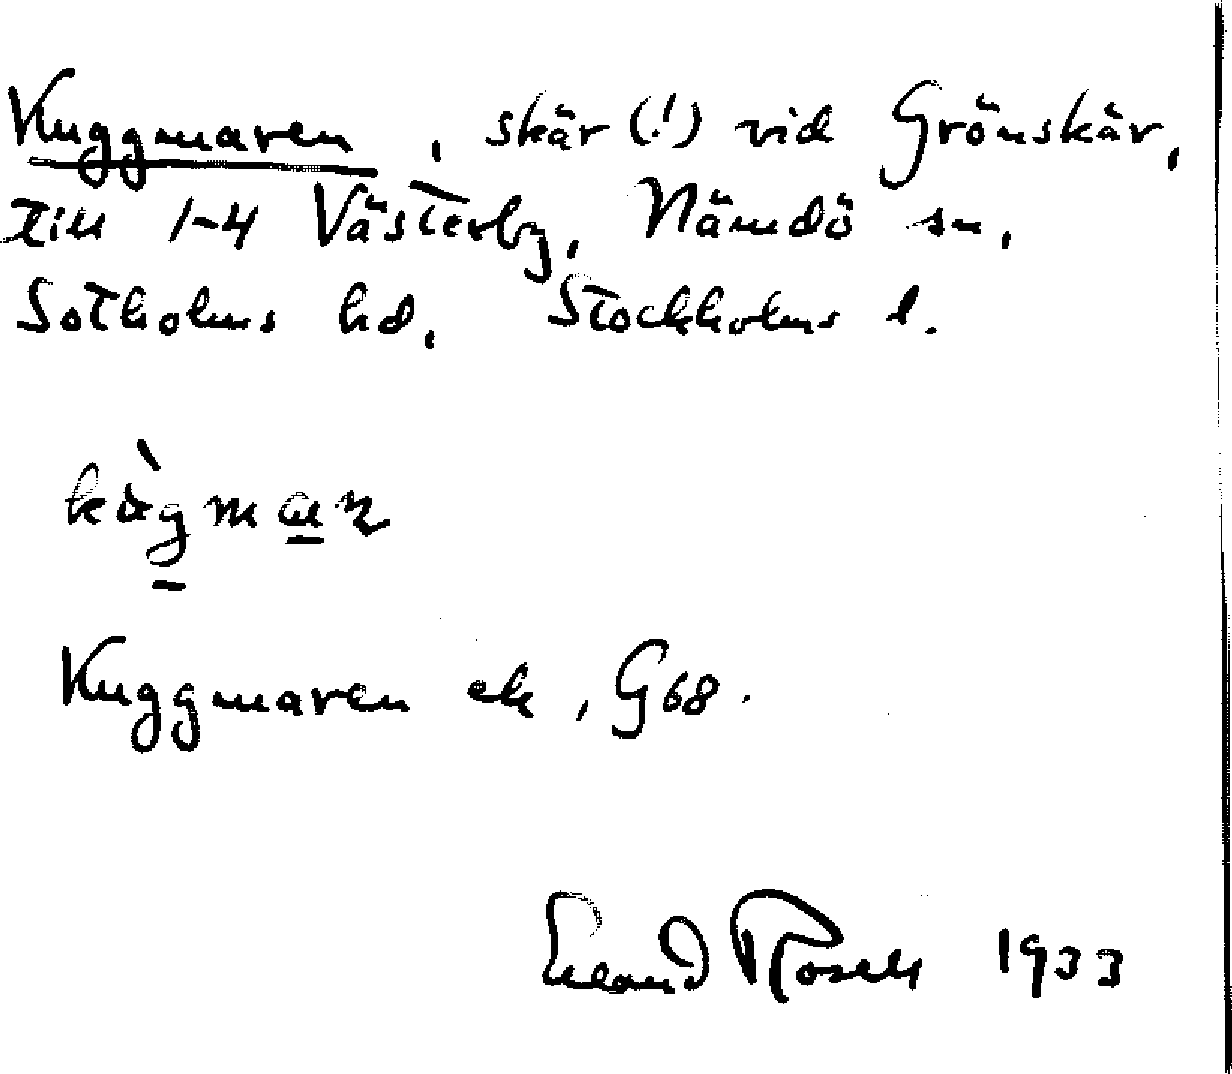 Kuggmaren, skär (!) vid Grönskär,
till 1-4 Västerby, Nämdö sn,
Sotholms hd, Stockholms l.
Kuggmaren ek, G68.
Erland Rosell 1933